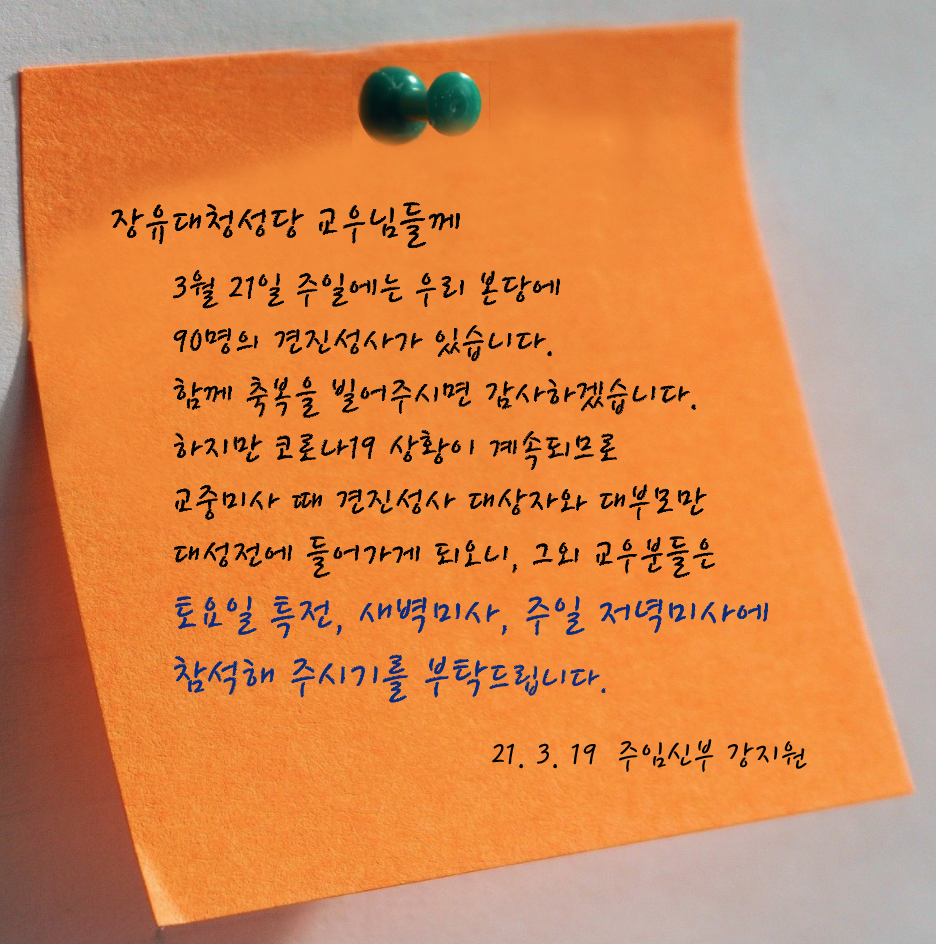 장유대청성당 교우님들께
3월 21일 주일에는 우리 본당에
90명의 견진성사가 있습니다.
함께 축복을 빌어주시면 감사하겠습니다.
하지만 코로나19 상황이 계속되므로
교중미사 때 견진성사 대상자와 대부모만
대성전에 들어가게 되오니, 그외 교우분들은
토요일 특전, 새벽미사, 주일 저녁미사에
참석해 주시기를 부탁드립니다.
21. 3. 19 주임신부 강지원